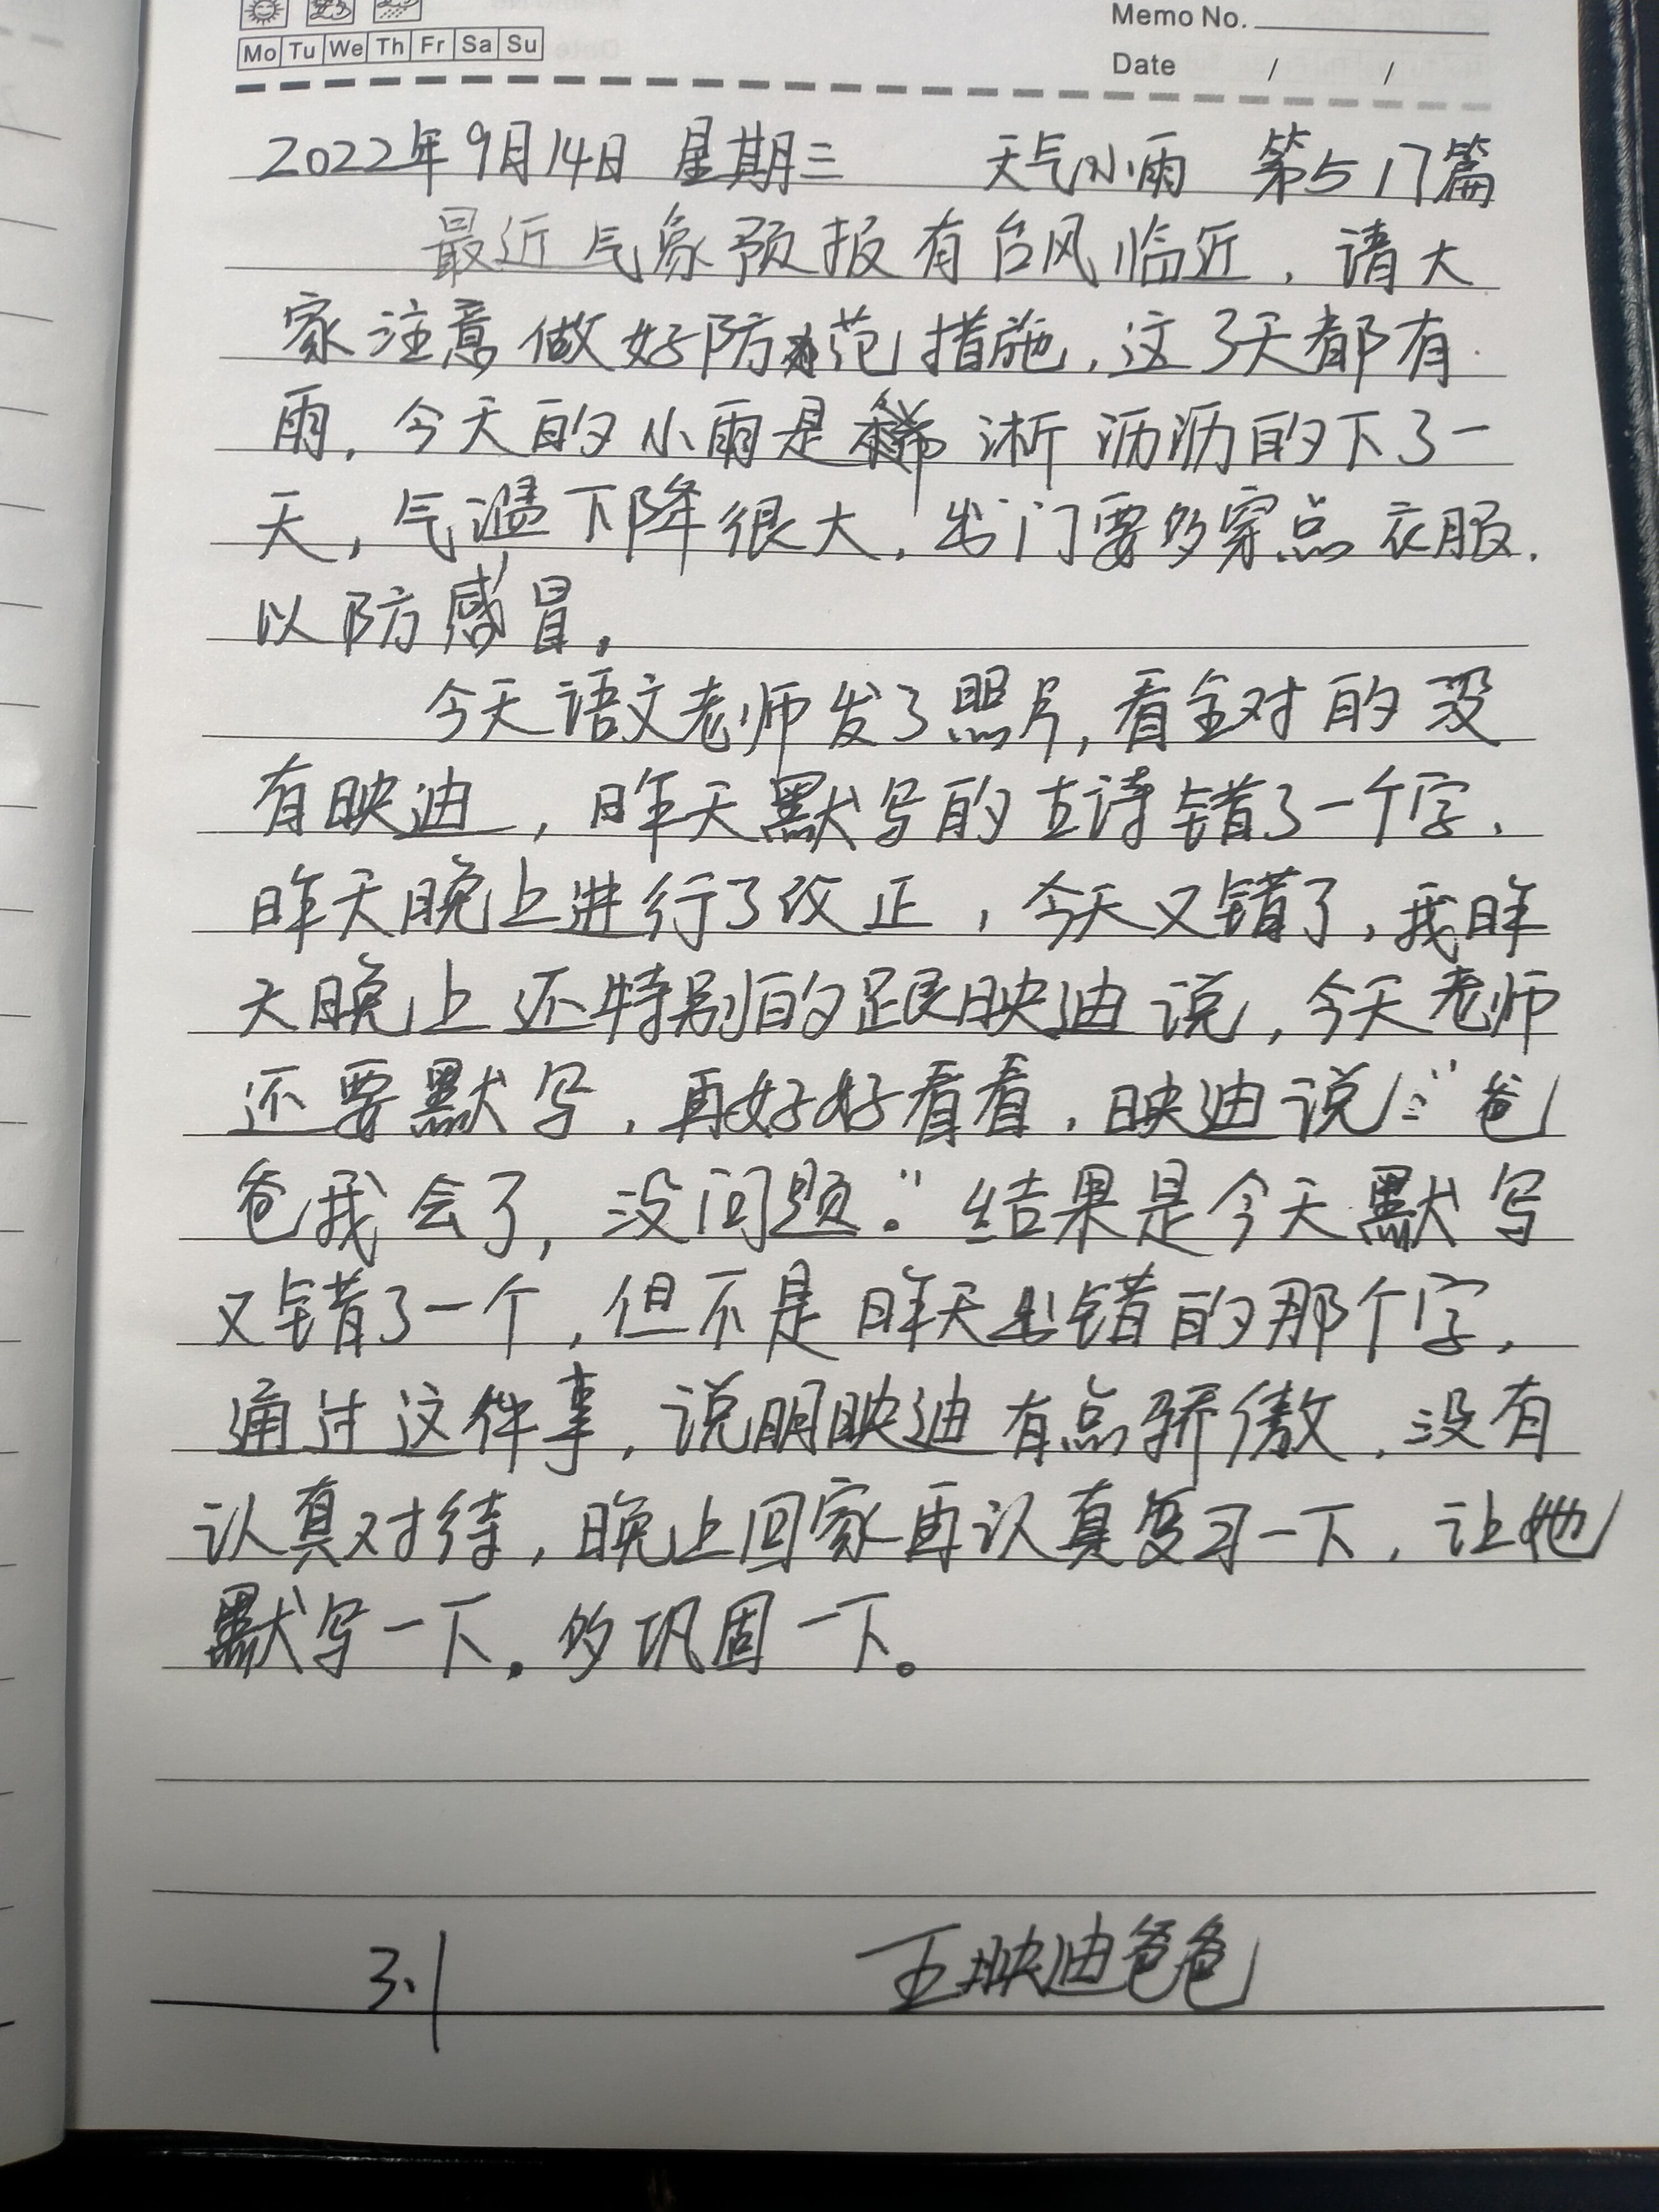 Mo Tu We Th Fr Sa Su
Memo No.
Date / /
2022年9月14日 星期三 天气小雨 第517篇
最近气象预报有台风临近，请大
家注意做好防范措施，这3天都有
雨，今天的小雨是淅沥沥的下了一
天，气温下降很大，出门要多穿点衣服，
以防感冒。
今天语文老师发了照片，看全对的没
有映迪，昨天默写的古诗错了一个字，
昨天晚上进行了改正，今天又错了，我昨
天晚上还特别的跟映迪说，今天老师
还要默写，再好好看看，映迪说：“爸
爸我会了，没问题。”结果是今天默写
又错了一个，但不是昨天出错的那个字，
通过这件事，说明映迪有点骄傲，没有
认真对待，晚上回家再认真复习一下，让她
默写一下。多巩固一下。
3.1 王映迪爸爸